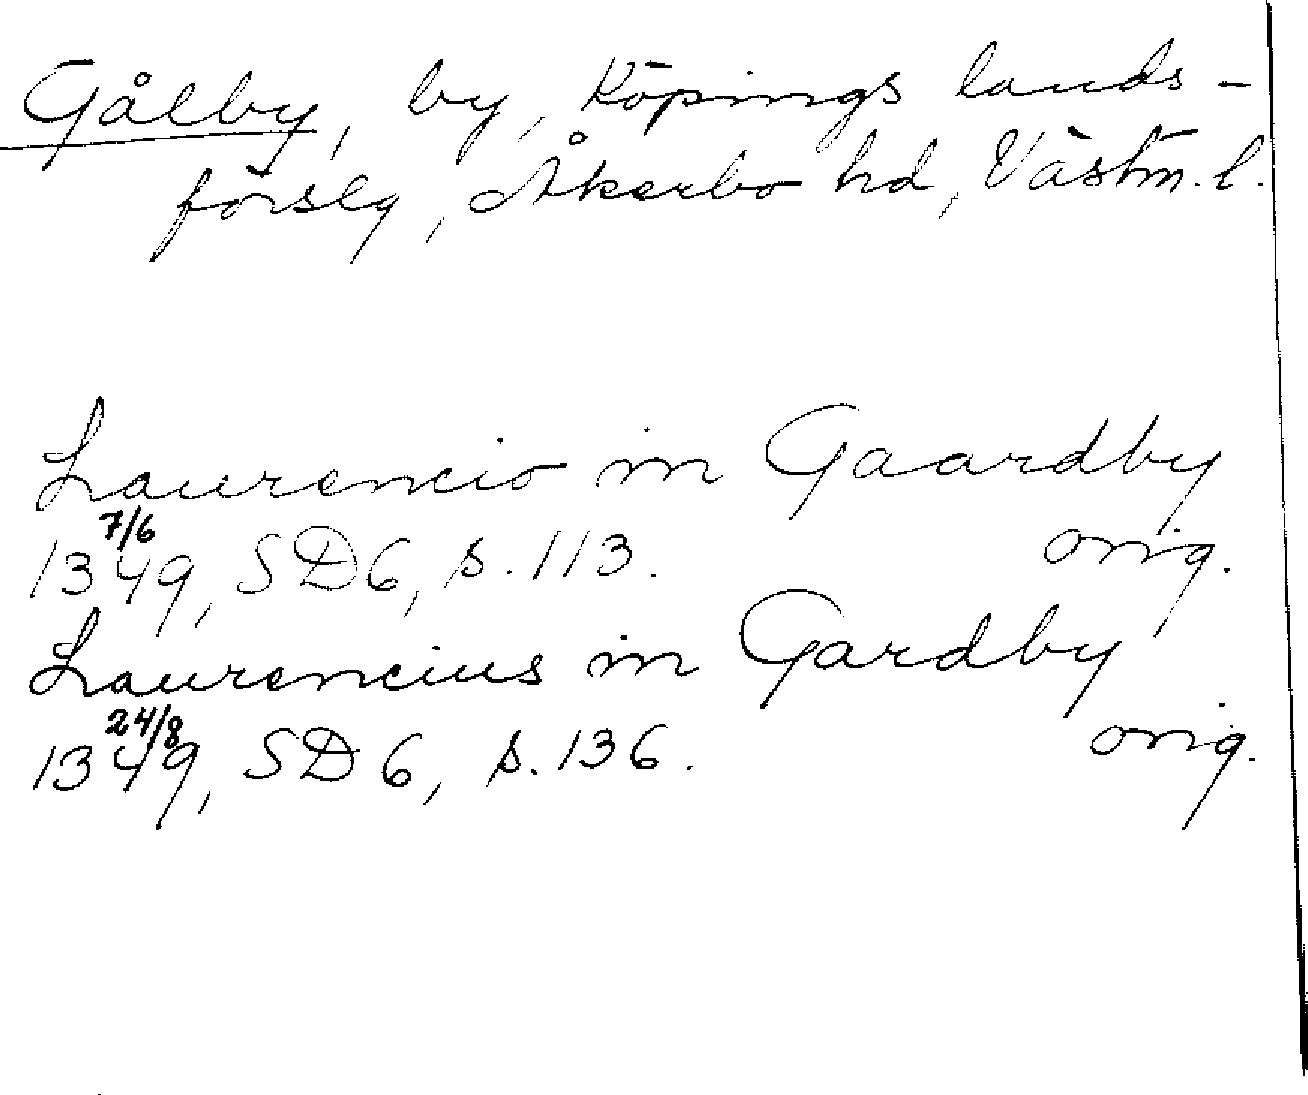 Gålby, by, Köpings lands-
förslg, Åkerbo hd, Västm. l.
Laurencio in Gaardby
7/6
1349, SD6, s. 113. orig.
Laurencius in Gardby
24/8
1349, SD 6, s. 136. orig.